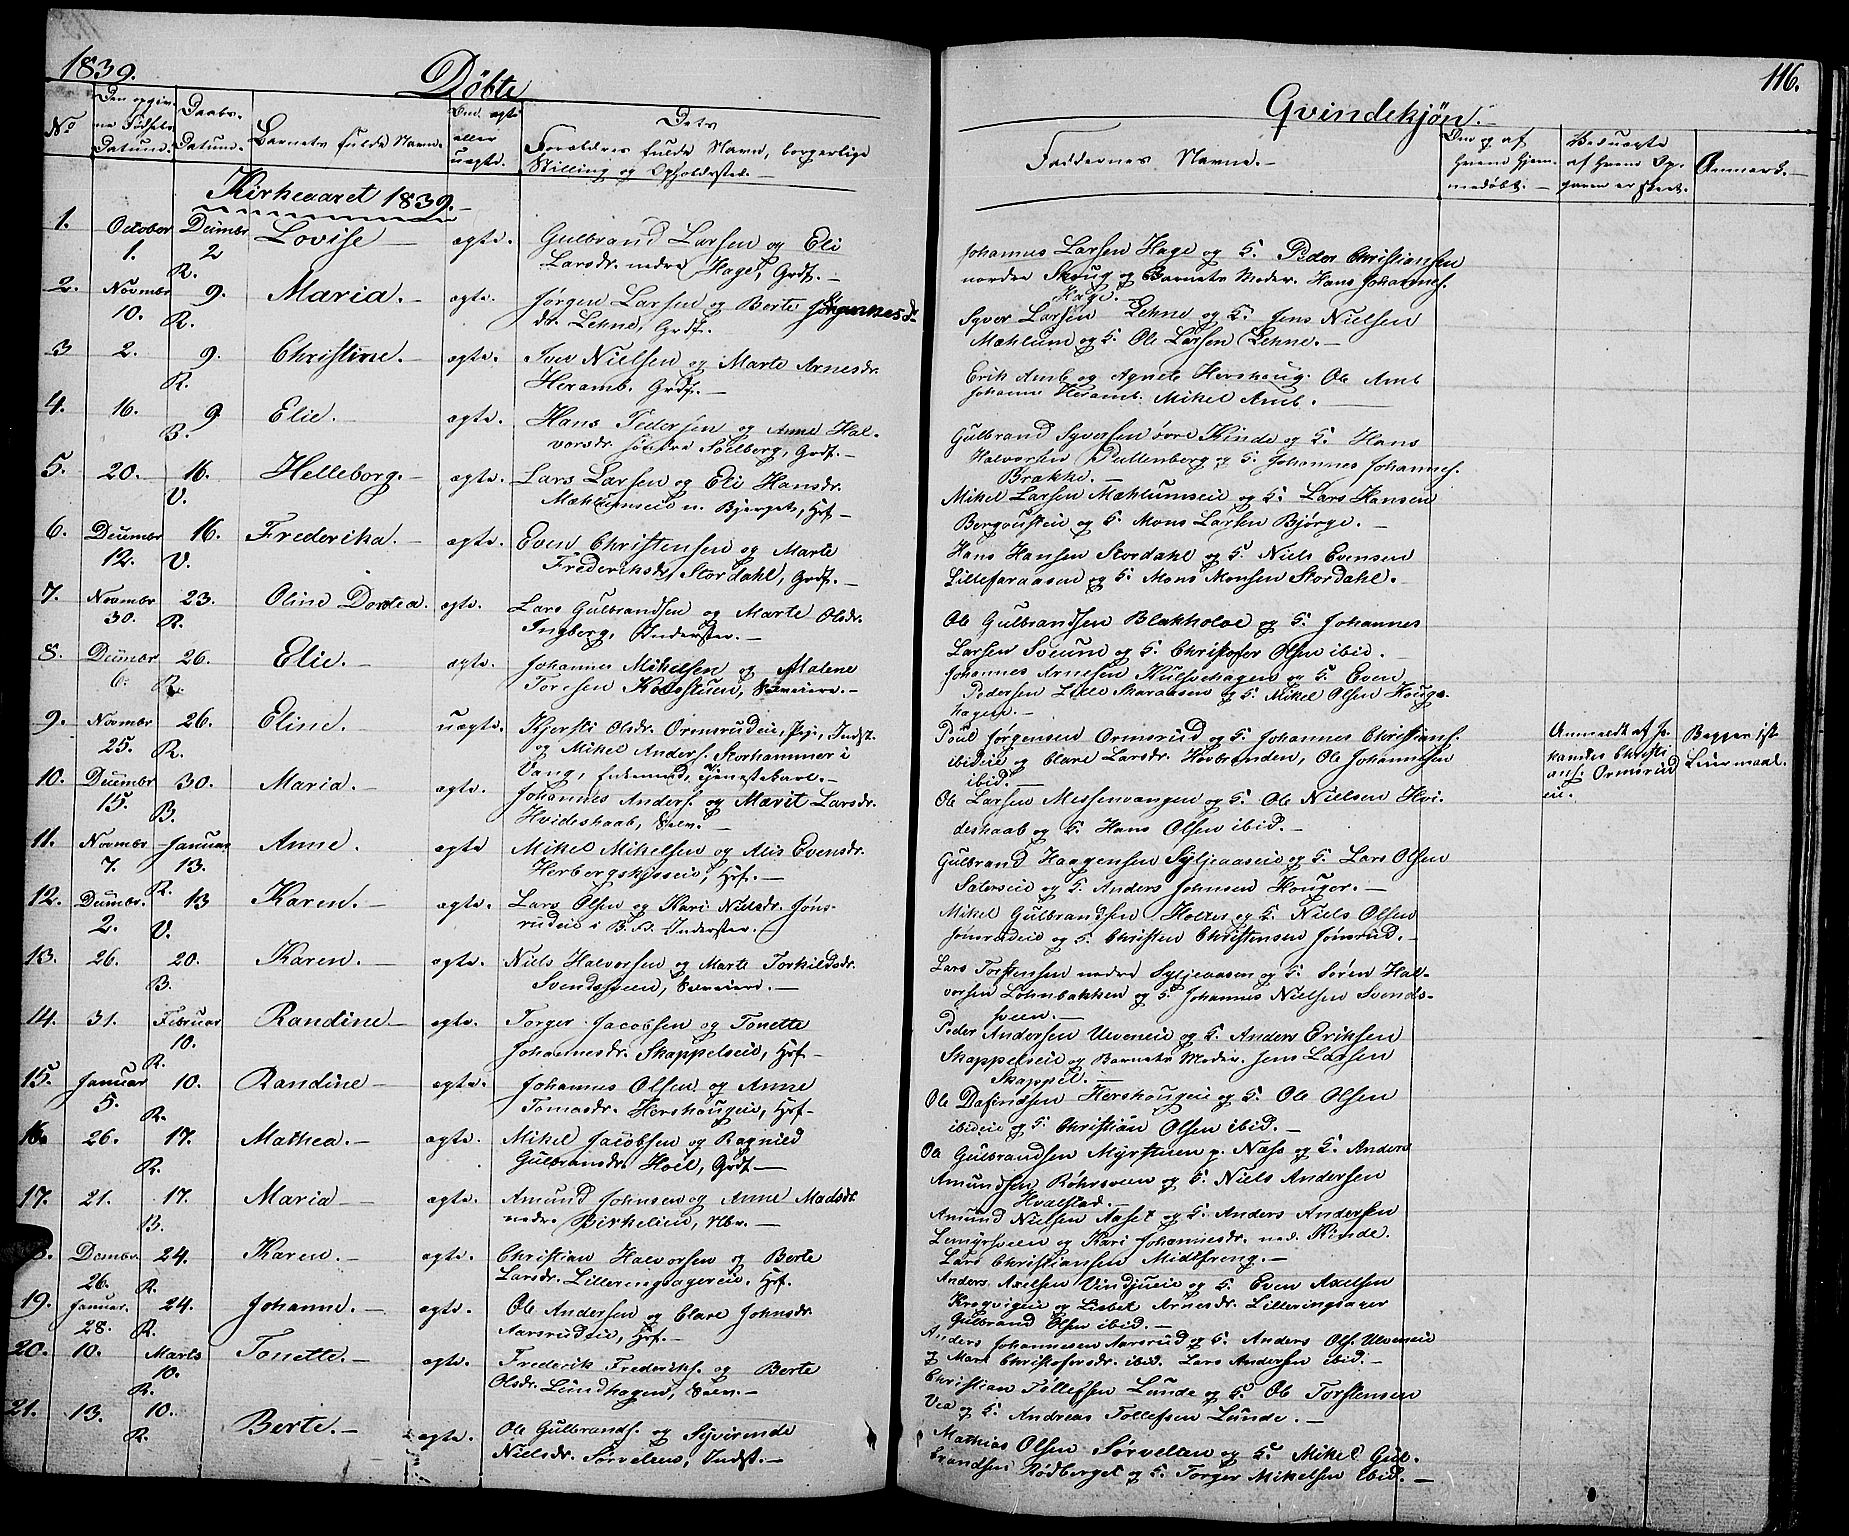 1839.
Døbte
Qvindekjøn.
116.
No
Den opgiv-
ne Fødsels
Datum.
Daabs-
Datum.
Barnets fulde Navn.
Om egte
eller
uegte.
Dets
Forældres fulde Navn, borgerlige
Stilling og Opholdssted.
Faddernes Navne.
Om og af
hvem hjem-
medøbt.
Besvogte
af hvem Op-
gaven er skeet.
Anmærk.
Kirkeaaret 1839.
1. October Decembr Lovise egte. Gulbrand Larsen og Eli
1. 2 Larsdr. nedre Hage, Grdf.
R.
Johannes Larsen Hage og G. Peder Christiansen
nordre Skoug og Barnets Moder. Hans Johannes.
Hage.
2. Novmbr 9. Maria. egte. Jørgen Larsen og Berte Johannes
10. R. dr. Lehne, Grdf.
Syver Larsen Lehne og G. Jens Nielsen
Mæhlum og G. Ole Larsen Lehne.
3 2. 9. Christine. egte. Iver Nielsen og Marte Arnesdr.
R. Heramb. Grdf.
Erik Amb og Agnete Hershoug. Ole Amb
Johanne Heramb. Mikel Amb.
4. 16. 9 Elie. egte. Hans Pedersen og Anne Hal-
B. vorsdr. søndre Soelberg, Grdf.
Gulbrand Syversen øvre Kinde og G. Hans
Halvorsen Puttenberg og G. Johannes Johannes.
Brække.
5. 20. 16. Helleborg. egte. Lars Larsen og Eli Hansdr.
V. Mæhlumseie u. Bjerget, Hrf.
Mikel Larsen Mæhlumseie og G. Lars Hansen
Bergvusteie og G. Mons Larsen Bjørge.
6. Decmbr 16. Frederika. egte. Even Christensen og Marte
12. V. Frederiksdr. Stordahl, Grdf.
Hans Hansen Stordahl og G. Niels Evensen
Lillefaraasen og G. Mons Monsen Stordahl.
7. Novmbr 23. Oline Dortea. egte. Lars Gulbrandsen og Marte Olsdr.
30. R. Ingberg, Inderster.
Ole Gulbrandsen Blakholve og G. Johannes
Larsen Sveum og G. Christofer Olsen ibid.
8. Decmbr 26. Elie. egte. Johannes Mikelsen og Malene
6. R. Toresen Kolsstuen, Selveiere.
Johannes Arnesen Kulsvehagen og G. Even
Pedersen Lille Maraasen og G. Mikel Olsen Houge-
hagen.
9. Novmbr 26. Eline. uegte. Kjersti Olsdr. Ormsrudeie, Pige, Indst.
25. R. og Mikel Anders. Storhammer i
Vang, Enkemand, Tjenestekarl.
Poul Jørgensen Ormsrud og G. Johannes Christians.
ibideie og Clare Larsdr. Hovbranden, Ole Johannesen
ibid.
Anmeldt af Jo-
hannes Christi
ans. Ormsrud
eie.
Begges 1ste
Leiermaal.
10. Decmbr 30. Maria. egte. Johannes Anders. og Marit Larsdr.
15. B. Hvideskaab, Selv.
Ole Larsen Messenvangen og G. Ole Nielsen Hvi-
deskaab og G. Hans Olsen ibid.
11. Novmbr Januar Anne. egte Mikel Mikelsen og Alis Evensdr.
7. 13. Herbergskysseie, Hrf.
R.
Gulbrand Haagensen Syljeaaseie og G. Lars Olsen
Saterseie og G. Anders Johnsen Houger.
12. Decmbr. 13 Karen. egte. Lars Olsen og Kari Nielsdr. Jøns-
2. V. rudeie i B.F. Inderster.
Mikel Gulbrandsen Holter og G. Niels Olsen
Jønsrudeie og G. Christen Christensen Jønsrud.
13. 26. 20. Karen. egte. Niels Halvorsen og Marte Torkildsdr.
B. Svendssveen, Selveiere.
Lars Torstensen nedre Syljeaasen og G. Søren Hal-
vorsen Lohnbakken og G. Johannes Nielsen Svends-
sveen.
14. 31. Februar Randine. egte. Torger Jacobsen og Tonette
10. Johannesdr. Skappelseie, Hrf.
R.
Peder Andersen Ulveneie og G. Anders Eriksen
Skappelseie og Barnets Moder. Jens Larsen
Skappel.
15. Januar 10. Randine egte. Johannes Olsen og Anne
5. R. Tomasdr. Hershougeie, Hrf.
Ole Dafindsen Hershougeie og G. Ole Olsen
ibideie og G. Christian Olsen ibid.
16. 26. 17. Mathea. egte. Mikel Jacobsen og Ragnild
R. Gulbransdr. Hoel, Grdf.
Ole Gulbrandsen Myrstuen p. Næss og G. Anders
Amundsen Røhrsveen og G. Niels Andersen
Hvalstad.
17. 21. 17. Maria egte. Amund Johnsen og Anne Madsdr.
B. nedre Birkelien, Nbr.
Amund Nielsen Aaset og G. Anders Andersen
Lemyrsveen og Kari Johannesdr. ned. Kinde.
Lars Christiansen Midtfreng.
8. Decmbr 24. Karen. egte. Christian Halvorsen og Berte
26. R. Larsdr. Lilleringsagereie. Hrf.
Anders Axelsen Vindjueie og G. Even Axelsen
Kragvigeie og Lisbet Arnesdr. Lilleringsager
Gulbrand Olsen ibid.
19. Januar. 24. Johanne. egte. Ole Andersen og Clare Johnsdr.
28. R. Aarsrudeie, Hrf.
Anders Johannesen Aarsrud og G. Anders Ols. Ulveneie
og Mari Christofersdr. ibid. Lars Andersen ibid.
20. 10. Marts Tonette. egte. Frederik Frederiks. og Berte
10. Olsdr. Lundhagen, Selv.
R.
Christian Tollefsen Lunde og G. Ole Torstensen
Vea og G. Andreas Tollefsen Lunde.
21. 13. 10. Berte. egte. Ole Gulbrands. og Syverende
R. Nielsdr. Sørvelten, Indst.
Mathias Olsen Sørvelten og G. Mikel Gul-
brandsen Rødberget og G. Torger Mikelsen ibid.